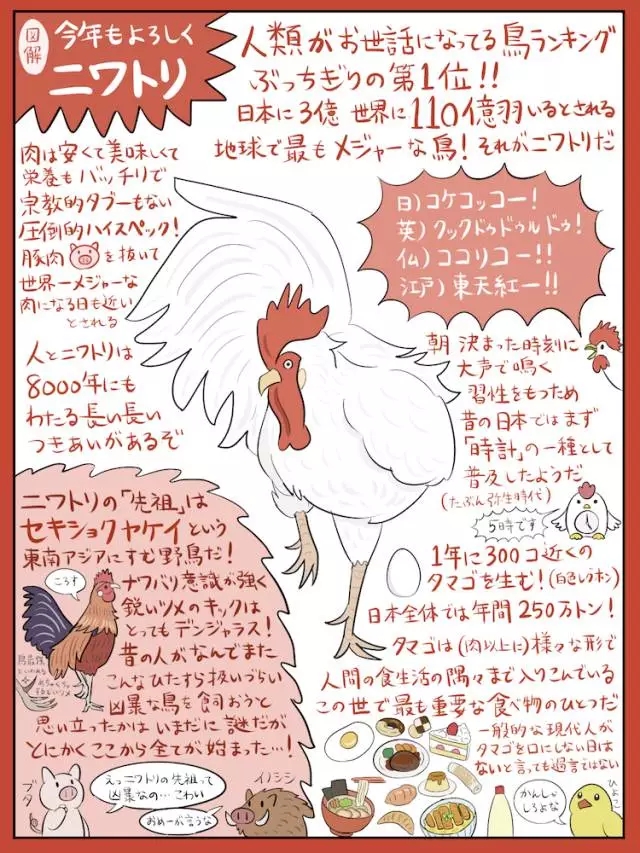 図解
今年もよろしく
ニワトリ
人類がお世話になってる鳥ランキング
ぶっちぎりの第1位!!
日本に3億 世界に110億羽いるとされる
地球で最もメジャーな鳥! それがニワトリだ
肉は安くて美味しくて
栄養もバッチリで
宗教的タブーもない
圧倒的ハイスペック!
豚肉を抜いて
世界一メジャーな
肉になる日も近い
とされる
日)コケコッコー!
英)クックドゥドゥルドゥ!
仏)ココリコー!!
江戸)東天紅ー!!
人とニワトリは
8000年にも
わたる長い長い
つきあいがあるぞ
朝 決まった時刻に
大声で鳴く
習性をもつため
昔の日本ではまず
「時計」の一種として
普及したようだ
(たぶん弥生時代)
5時です
ニワトリの「先祖」は
セキショクヤケイという
東南アジアにすむ野鳥だ!
ころす
ナワバリ意識が強く
鋭いツメのキックは
とってもデンジャラス!
昔の人がなんでまた
こんなひたすら扱いづらい
凶暴な鳥を飼おうと
思い立ったかはいまだに謎だが
とにかくここから全てが始まった…!
1年に300コ近くの
タマゴを生む!(白色レグホン)
日本全体では年間250万トン!
タマゴは(肉以上に)様々な形で
人間の食生活の隅々まで入りこんでいる
この世で最も重要な食べ物のひとつだ
一般的な現代人が
タマゴを口にしない日は
ないと言っても過言ではない
ブタ
えっニワトリの先祖って
凶暴なの…こわい
イノシシ
おめーが言うな
かんしゃ
しろよな
ひよこ